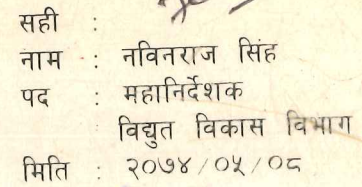 सही :
नाम : नविनराज सिंह
पद : महानिर्देशक
विद्युत विकास विभाग
मिति : २०७४/०५/०८